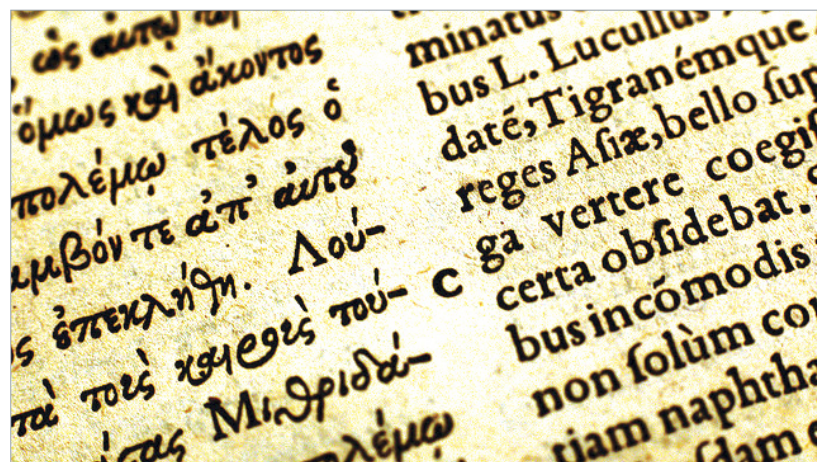 ὡς αὐτῷ
ὅμως καὶ ἄκοντος
πολέμῳ τέλος ὁ
τε ἀπ' αὐτοῦ
ἐπεκλήθη. Λού-
τοὺς καιροὺς τού-
Μιθριδά-
minatus
bus L. Lucullus
daté, Tigranémque
reges Aſiæ, bello ſup
C
ga vertere coegiſ
certa obſidebat.
bus incõmodis
non ſolùm con
tiam naphtha
ſdam e